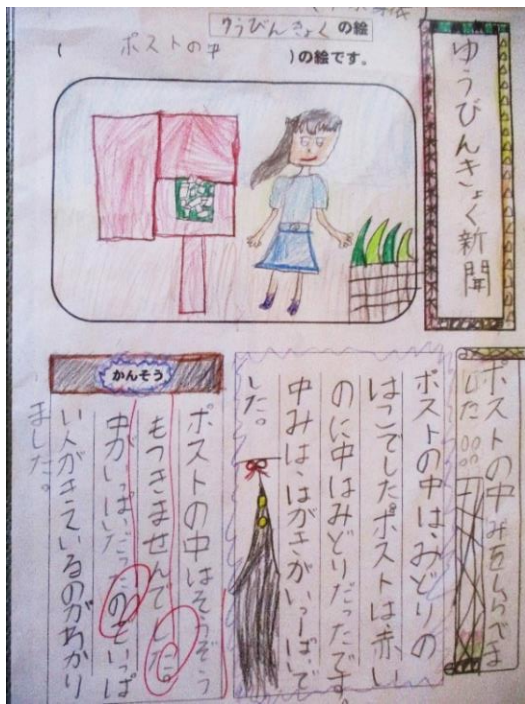 ゆうびんきょく新聞
ゆうびんきょく の絵
( ポストの中 )の絵です。
ポストの中みをしらべま
した。
ポストの中は、みどりの
はこでしたポストは赤い
のに中はみどりだったです。
中みは、はがきがいっぱいで
した。
かんそう
ポストの中はそうぞう
もつきませんでした。
中がいっぱいだったのでいっぱ
い人がきえいるのがわかり
ました。